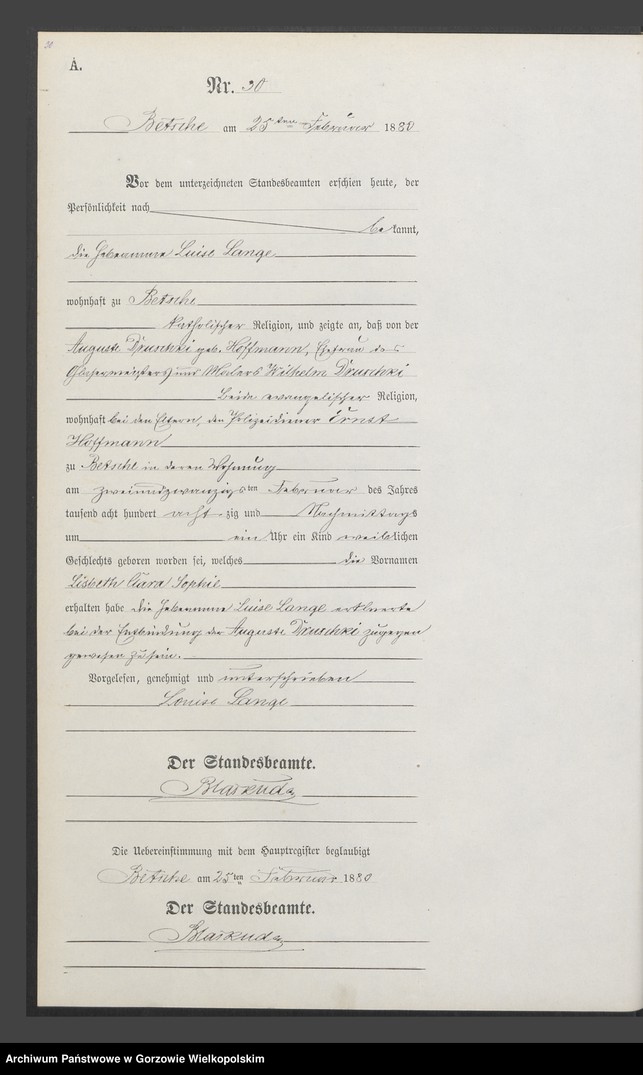 30
A.
Nr. 30
Betsche am 25ten Februar 1880
Vor dem unterzeichneten Standesbeamten erschien heute, der
Persönlichkeit nach
bekannt,
die Hebeamme Luise Lange
wohnhaft zu Betsche
katholischer Religion, und zeigte an, daß von der
Auguste Druschki geb. Hoffmann, Ehefrau des
Glasermeisters und Malers Wilhelm Druschki
Beide evangelischer Religion,
wohnhaft bei den Eltern, den Polizeidiener Ernst
Hoffmann
zu Betsche in deren Wohnung
am zweiundzwanzigsten Februar des Jahres
tausend acht hundert achtzig und Nachmittags
um ein Uhr ein Kind weiblichen
Geschlechts geboren worden sei, welches die Vornamen
Lisbeth Clara Sophie
erhalten habe die Hebeamme Luise Lange erklaerte
bei der Entbindung der Auguste Druschki zugegen
gewesen zu sein.
Vorgelesen, genehmigt und unterschrieben
Louise Lange
Der Standesbeamte.
Die Uebereinstimmung mit dem Hauptregister beglaubigt
Betsche am 25ten Februar 1880
Der Standesbeamte.
Archiwum Państwowe w Gorzowie Wielkopolskim